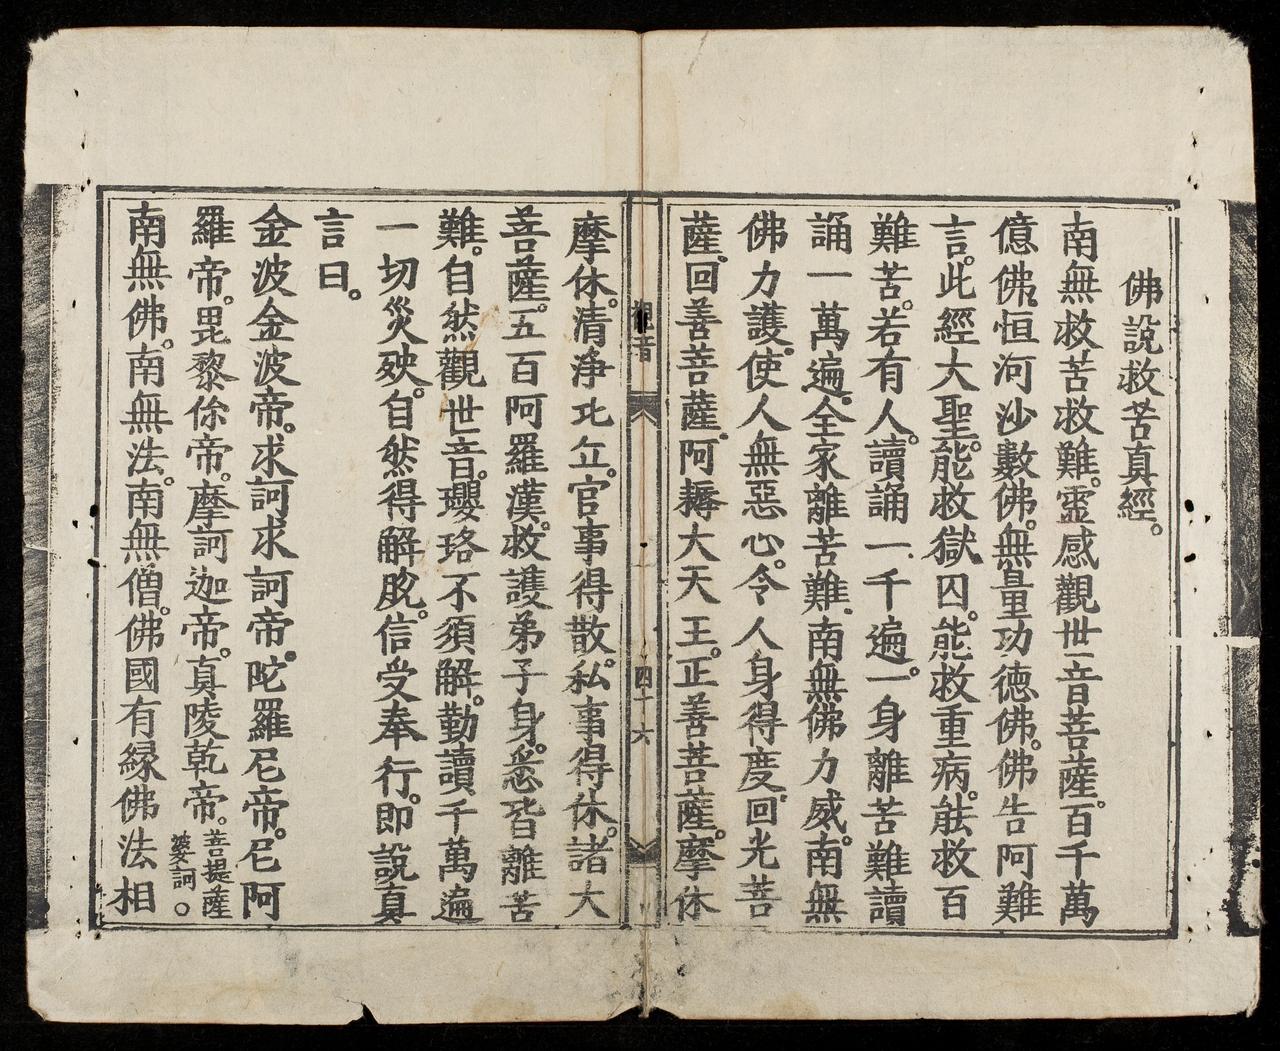 佛說救苦真經。
南無救苦救難。靈感觀世音菩薩。百千萬
億佛。恒河沙數佛。無量功德佛。佛告阿難
言。此經大聖。能救獄囚。能救重病。能救百
難苦。若有人。讀誦一千遍。一身離苦難讀
誦一萬遍。全家離苦難。南無佛力威。南無
佛力護。使人無惡心。令人身得度。回光菩
薩。回善菩薩。阿耨大天王。正善菩薩。摩休
摩休。清淨北丘。官事得散。私事得休。諸大
菩薩。五百阿羅漢。救護弟子身。悉皆離苦
難。自然觀世音。瓔珞不須解。勤讀千萬遍
一切災殃。自然得解脫。信受奉行。即說真
言曰。
金波金波帝。求訶求訶帝。陀羅尼帝。尼阿
羅帝。毘黎你帝。摩訶迦帝。真陵乾帝。菩提薩婆訶。
南無佛。南無法。南無僧。佛國有緣佛法相
觀音
四十六